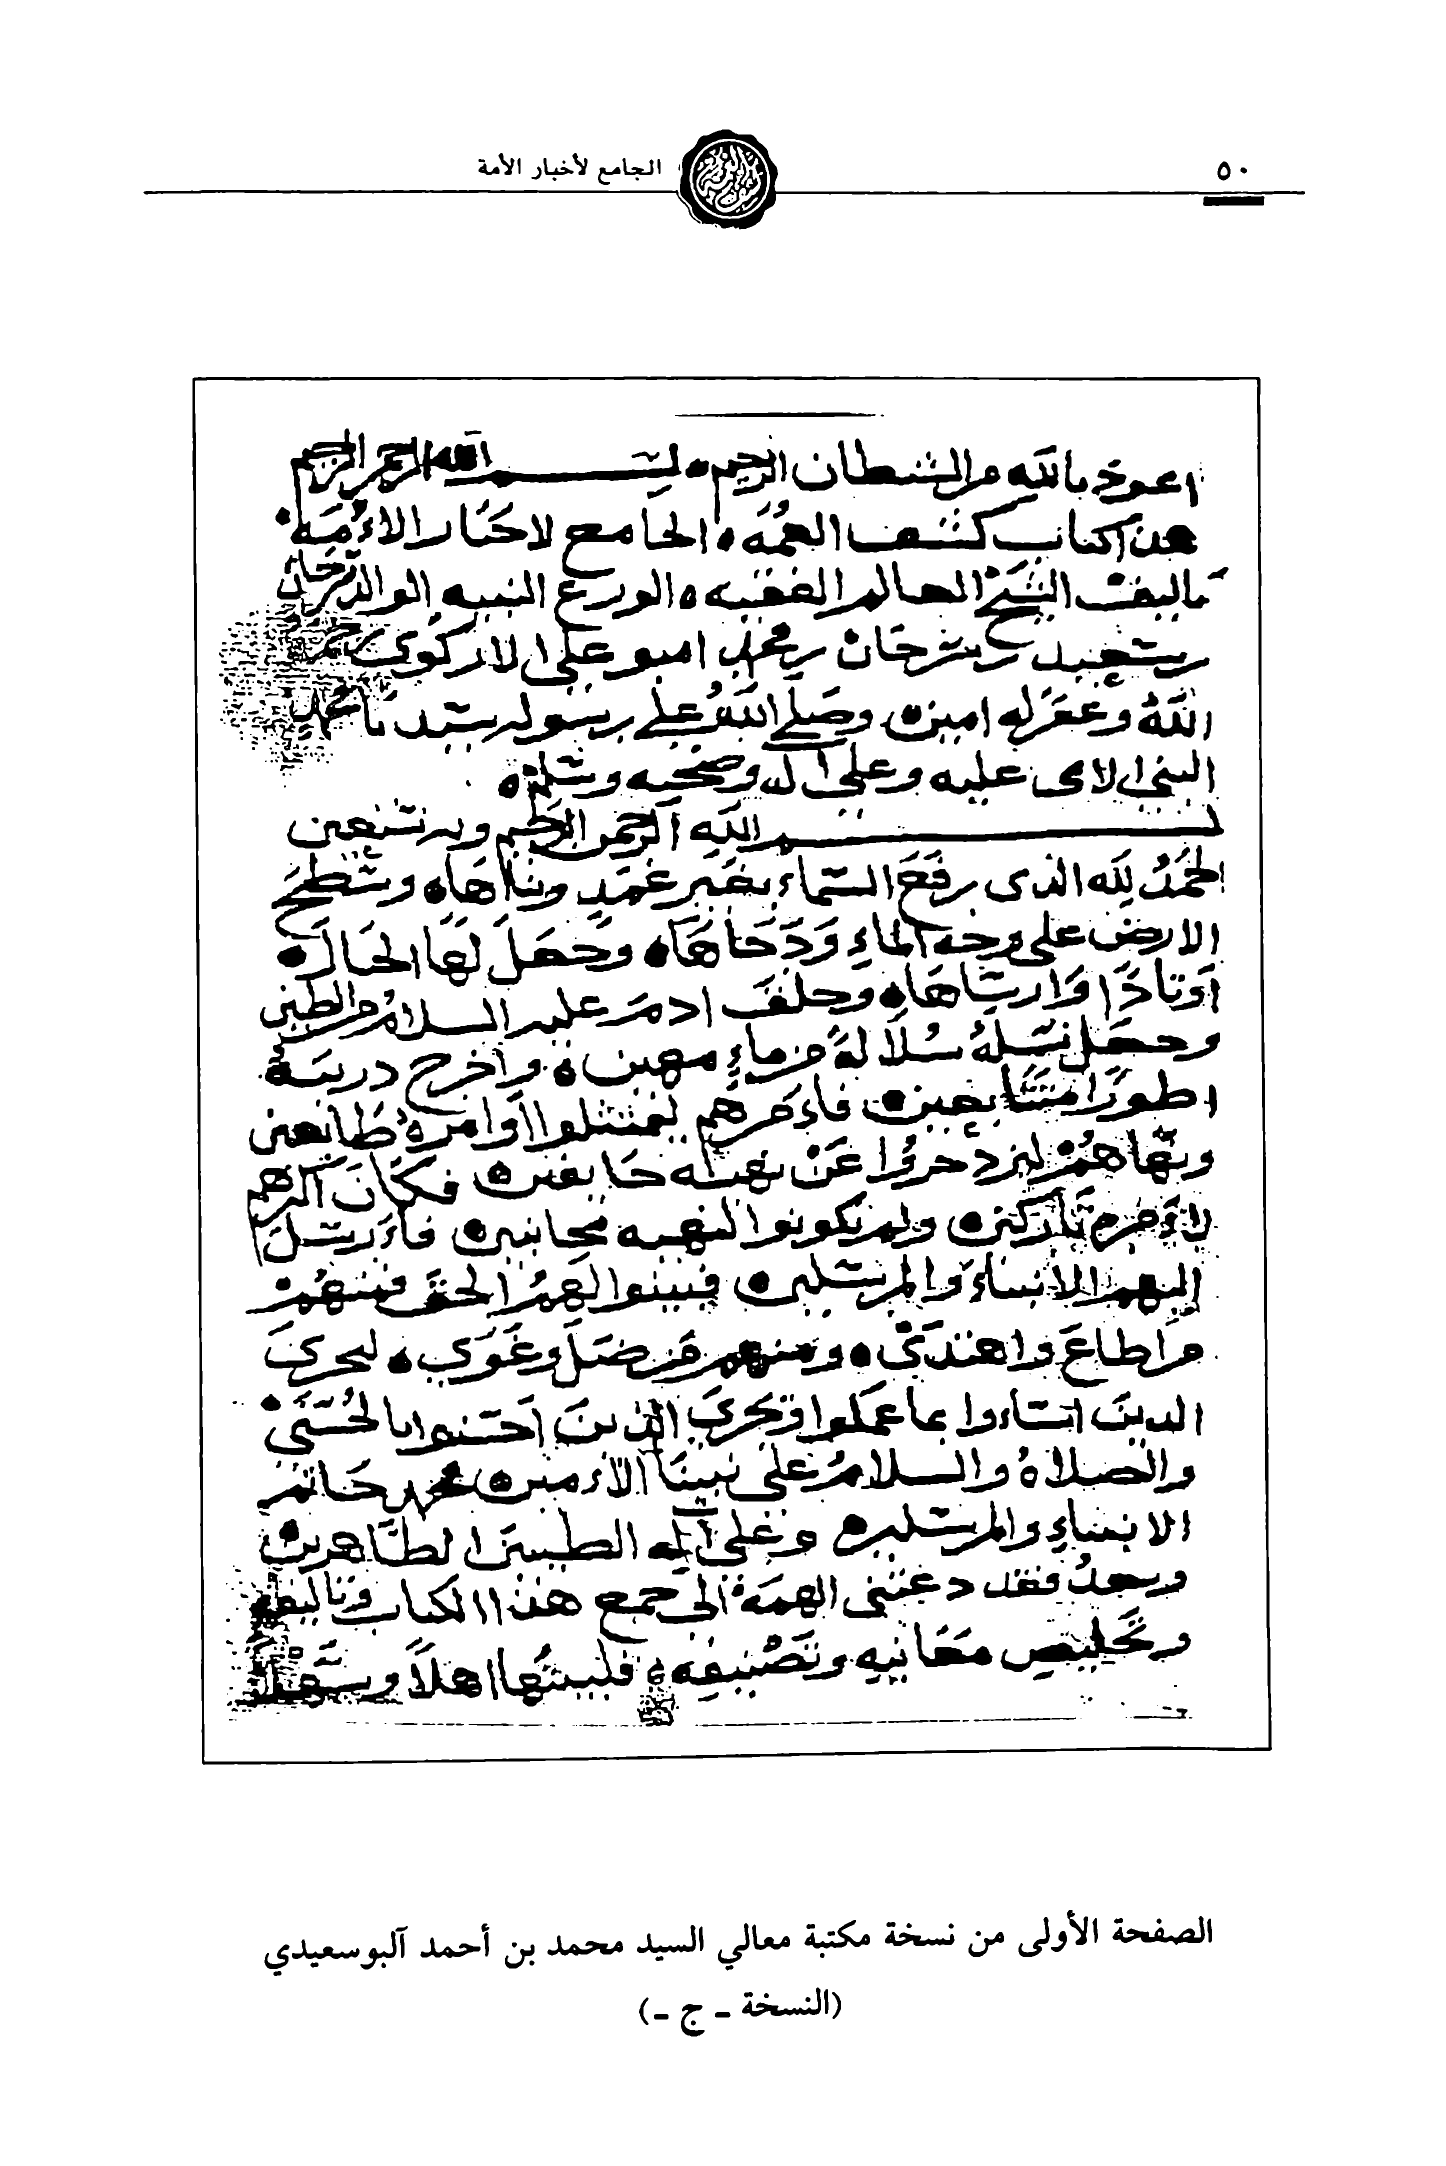 ٥٠
الجامع لأخبار الأمة
اعوذ بالله من الشيطان الرجيم بسم الله الرحمن الرحيم
هذا كتاب كشف الغمه الجامع لاخبار الأمة
تاليف الشيخ العالم الفقيه الورع النبيه الوالد سرحان
بن سعيد بن سرحان بن محمد امبو علي الازكوي رحمه
اللهُ وغفر له امين وصلى اللهُ على رسوله سيدنا محمد
النبي الامي عليه وعلى آله وصحبه وسلم
بسم الله الرحمن الرحيم وبه نستعين
الحمدُ لله الذي رفعَ السماء بغير عمَد وبناها وسطحَ
الارض على وجه الماءِ وَدَحاها وجعلَ لهَا الجبالَ
أوتادًا وارسَاهَا وخلقَ ادمَ عليه السلام من الطين
وجعل نسلَهُ سُلالةً من ماءٍ مهين وأخرج ذريتهُ
اطورًا متتَابعين فأمرهم ليمتثلوا أوامرهُ طايعين
ونهاهمْ ليزدجروا عَنْ نهيه خايفين فكانَ اكثرهم
لأمره تاركين ولم يكونوا لنهيه مجانبين فأرسَلَ
إليهم الانبياءَ والمرسَلين فبينوا لهمُ الحقَ فمنهمْ
من أطاعَ واهتدَى ومنهم من ضلَ وغَوى ليجزيَ
الذينَ اساءوا بما عملوا ويجزيَ الذينَ احسَنوا بالحُسنَى
والصلاةُ والسلامُ على نبينَا الأمين محمد خاتم
الانبياءِ والمرسَلين وعلى آله الطيبين الطاهرين
وبعدُ فقد دعتني الهمة الى جمع هذا الكتاب وتاليفه
وتخليص معَانيه وتَصْنيفه فلبيتُها اهلاً وسَهلاً
الصفحة الأولى من نسخة مكتبة معالي السيد محمد بن أحمد آلبوسعيدي
(النسخة ـ ج ـ)